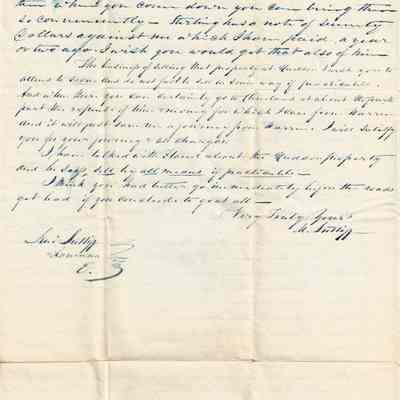 them when you come down you can bring them
so conveniently — Sterling has a note of seventy
Dollars against me which I have paid a year
or two ago. I wish you would get that also of him
The business of selling that property at I wish you to
attend to soon and do not fail to sell in some way if practicable.
And when there you can certainly go to Cleveland at about the
part the of this money for which I can from Warren
and it will just save me a journey from Warren. I will satisfy
you for your journey & all charges.
I have talked with about the property
and he says sell by all means if practicable —
I think you had better go immediately before the roads
get bad if you conclude to go at all —
Very Truly Yours
M. Sutliff
Levi Sutliff
E.